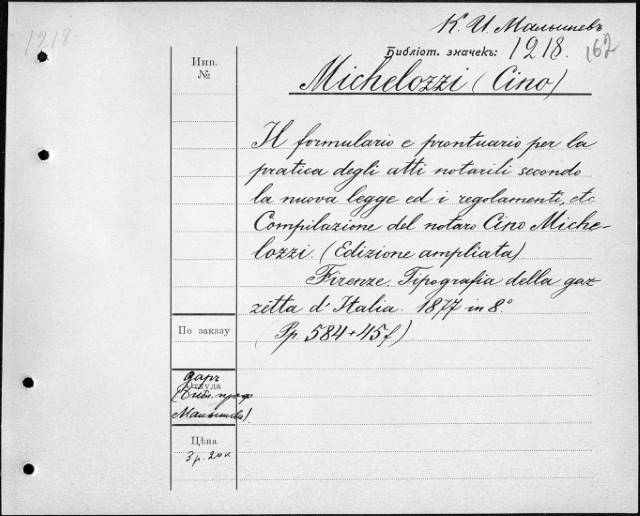 1218
К. И. Малышевъ
Библіот. значекъ: 1218. 162
Michelozzi (Cino)
Инв.
№
Il formulario e prontuario per la
pratica degli atti notarili secondo
la nuova legge ed i regolamenti, etc
Compilazione del notaro Cino Miche-
lozzi. (Edizione ampliata)
Firenze. Tipografia della gaz-
zetta d'Italia. 1877 in 8.°
(Pp 584+45f)
По заказу
даръ
Откуда
(Библ. проф
Малышева)
Цѣна
3 р. 20 к